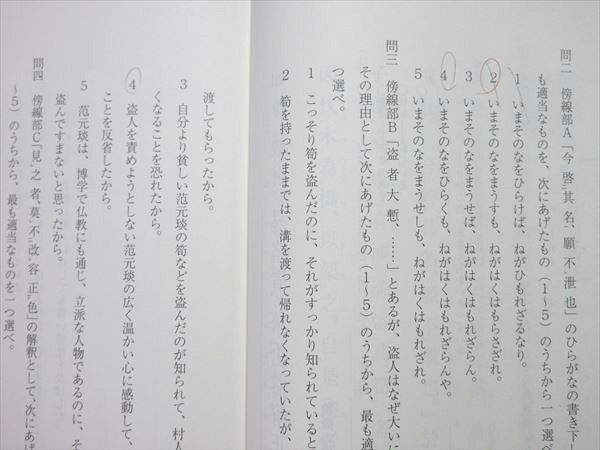 問二 傍線部A「今啓其名、願不泄也」のひらがなの書き下し
も適当なものを、次にあげたもの(1～5)のうちから一つ選べ
1 いまそのなをひらけば、ねがひもれざるなり。
2 いまそのなをまうすも、ねがはくはもらさざれ。
3 いまそのなをまうせば、ねがはくはもれざらん。
4 いまそのなをひらくも、ねがはくはもれざらんや。
5 いまそのなをまうせしも、ねがはくはもれざれ。
問三 傍線部B「盗者大慙、……」とあるが、盗人はなぜ大いに
その理由として次にあげたもの(1～5)のうちから、最も適
つ選べ。
1 こっそり筍を盗んだのに、それがすっかり知られていると
2 筍を持ったままでは、溝を渡って帰れなくなっていたが、
渡してもらったから。
3 自分より貧しい范元琰の筍などを盗んだのが知られて、村人
くなることを恐れたから。
4 盗人を責めようとしない范元琰の広く温かい心に感動して、
ことを反省したから。
5 范元琰は、博学で仏教にも通じ、立派な人物であるのに、そ
盗んですまないと思ったから。
問四 傍線部C「見之者、莫不改容正色」の解釈として、次にあげ
～5)のうちから、最も適当なものを一つ選べ。